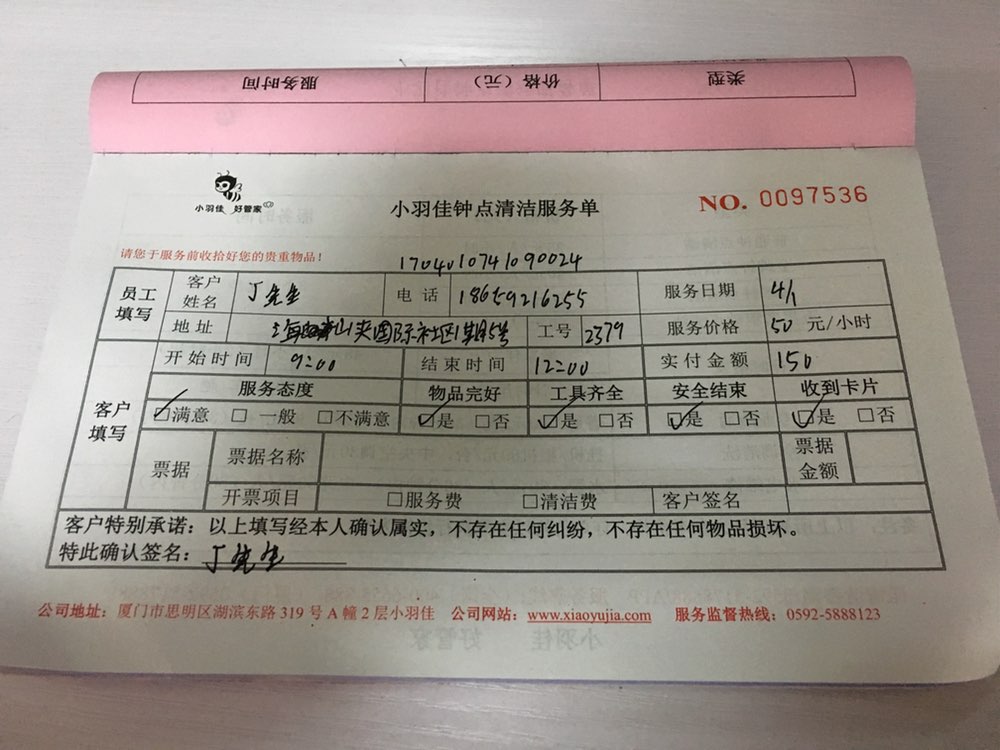 服务时间 价格（元） 类型
小羽佳 好管家
小羽佳钟点清洁服务单
NO. 0097536
请您于服务前收拾好您的贵重物品！
1704010741090024
员工填写 客户姓名 丁先生 电话 18659216255 服务日期 4/1
地址 山夹国际社区1期5号 工号 2379 服务价格 50 元/小时
客户填写 开始时间 9:00 结束时间 12:00 实付金额 150
服务态度 物品完好 工具齐全 安全结束 收到卡片
☑满意 □一般 □不满意 ☑是 □否 ☑是 □否 ☑是 □否 ☑是 □否
票据 票据名称 票据金额
开票项目 □服务费 □清洁费 客户签名
客户特别承诺：以上填写经本人确认属实，不存在任何纠纷，不存在任何物品损坏。
特此确认签名：丁先生
公司地址：厦门市思明区湖滨东路 319 号 A 幢 2 层小羽佳 公司网站：www.xiaoyujia.com 服务监督热线：0592-5888123